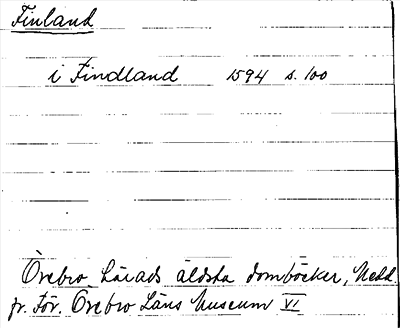 Finland
i Findland 1594 s. 100
Örebro härads äldsta domböcker, Medd.
fr. För. Örebro Läns Museum VI